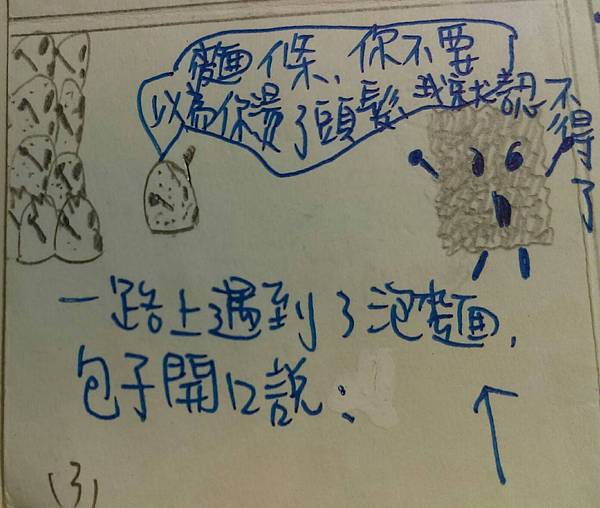 麵條,你不要
以為你燙了頭髮,我就認不得了
一路上遇到了泡麵,
包子開口說:
(3)